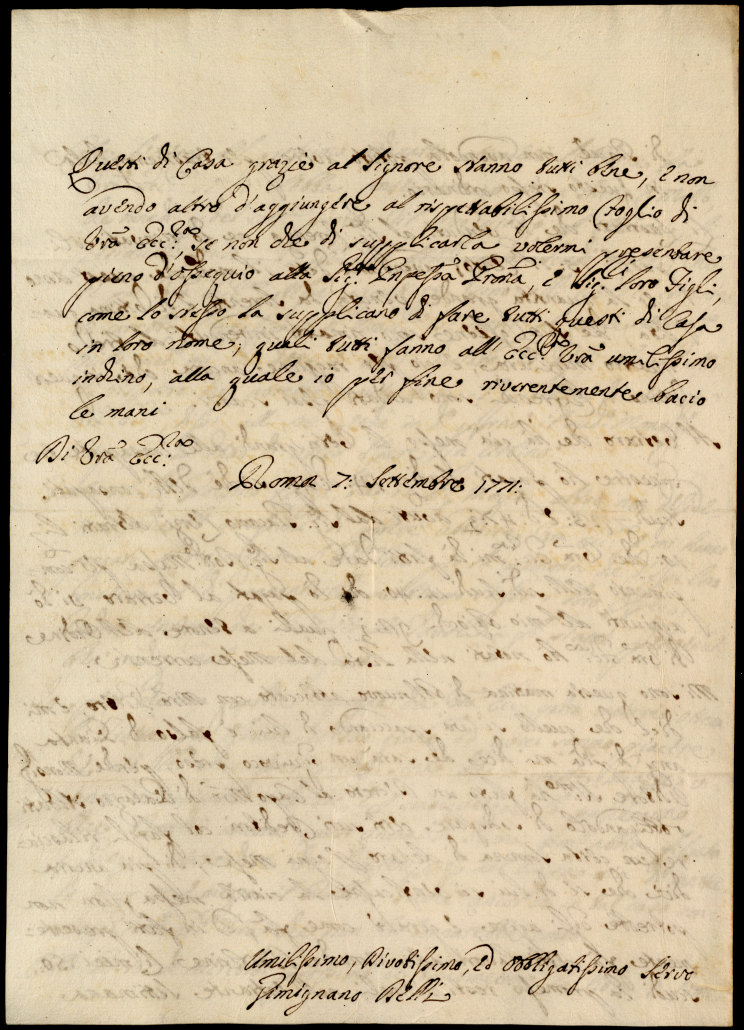 Questi di Casa grazie al Signore stanno tutti bene, e non
avendo altro d'aggiungere al rispettabilissimo foglio di
Vrã Ecc:za, se non che di supplicarla volermi presentare
pieno d'ossequio alla Sig:ra Pnpessa Prona, e Sig:ri loro Figli,
come lo stesso la supplicano di fare tutti questi di Casa
in loro nome, quali tutti fanno all' Ecc:za Vrã umilissimo
inchino, alla quale io per fine riverentemente bacio
le mani
Di Vrã Ecc:za
Roma 7: Settembre 1771:
Umilissimo, Divotissimo, ed Obbligatissimo Servo
Gimignano Belli